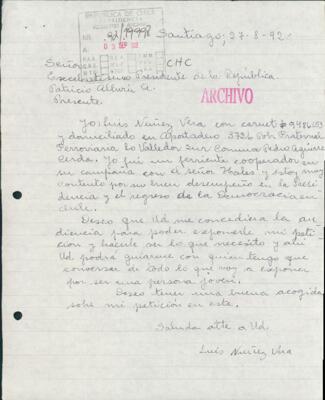 REPUBLICA DE CHILE
PRESIDENCIA
REGISTRO Y ARCHIVO
NR. 92/19998
A: 03 SEP 92
Santiago, 27-8-92.
Señor
CHC
Excelentísimo Presidente de la República
Patricio Allwin A.
Presente.
ARCHIVO
Yo; Luis Nuñez Vera con carnet
y domiciliado en Apostadero 3736 Pob. Fraternal
Ferroviaria Lo Valledor Sur Comuna Pedro Aguirre
Cerda. Yo fui un ferviente cooperador en
su campaña con el señor Hales y estoy muy
contento por su buen desempeño en la presi
dencia y el regreso de la Democracia en
Chile.
Deseo que Ud me concediera la au
diencia para poder exponerle mi peti
ción y hacerle ver lo que necesito y ahi
Ud podrá guiarme con quien tengo que
conversar de todo lo que voy a exponer
por ser una persona joven.
Deseo tener una buena acogida
sobre mi petición en este.
Saluda atte a Ud.
Luis Nuñez Vera